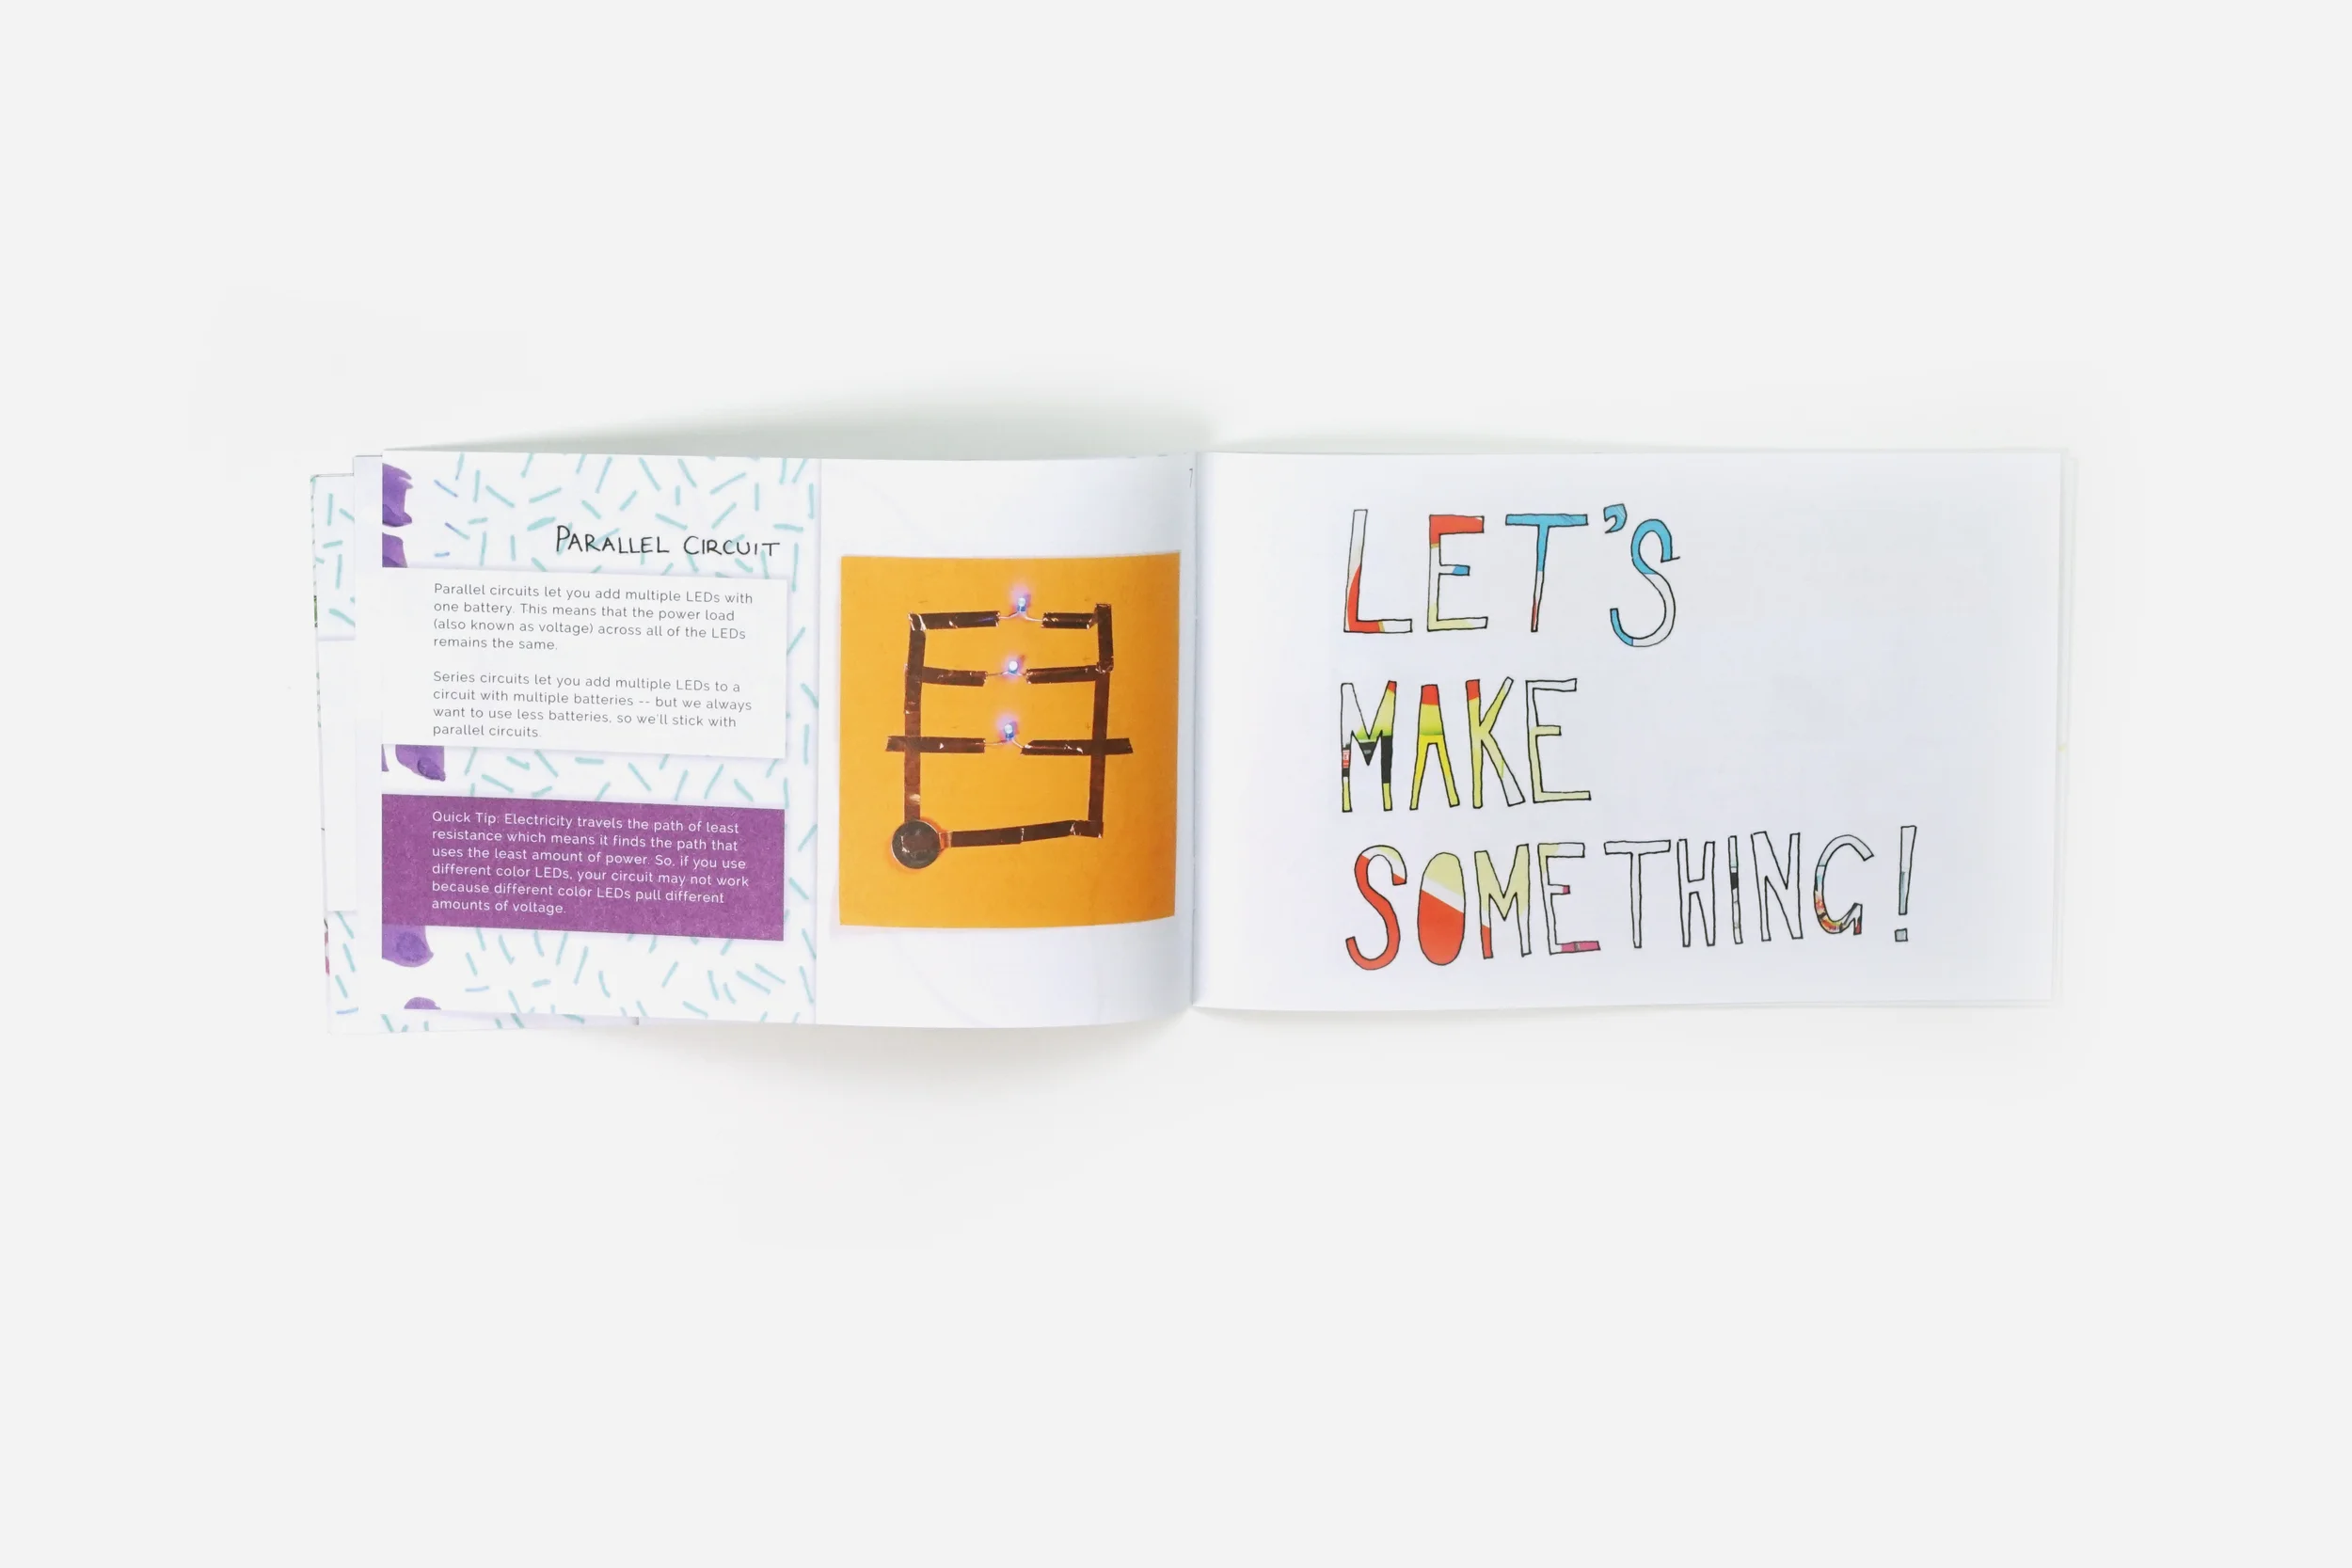 PARALLEL CIRCUIT
Parallel circuits let you add multiple LEDs with
one battery. This means that the power load
(also known as voltage) across all of the LEDs
remains the same.
Series circuits let you add multiple LEDs to a
circuit with multiple batteries -- but we always
want to use less batteries, so we'll stick with
parallel circuits.
Quick Tip: Electricity travels the path of least
resistance which means it finds the path that
uses the least amount of power. So, if you use
different color LEDs, your circuit may not work
because different color LEDs pull different
amounts of voltage.
LET'S
MAKE
SOMETHING!